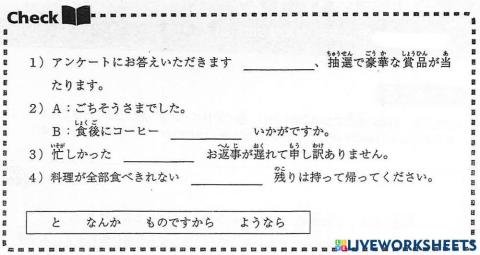 Check
1）アンケートにお答えいただきます ＿＿＿＿、抽選で豪華な賞品が当
たります。
2）A：ごちそうさまでした。
B：食後にコーヒー ＿＿＿＿ いかがですか。
3）忙しかった ＿＿＿＿ お返事が遅れて申し訳ありません。
4）料理が全部食べきれない ＿＿＿＿ 残りは持って帰ってください。
と なんか ものですから ようなら
LIVEWORKSHEETS